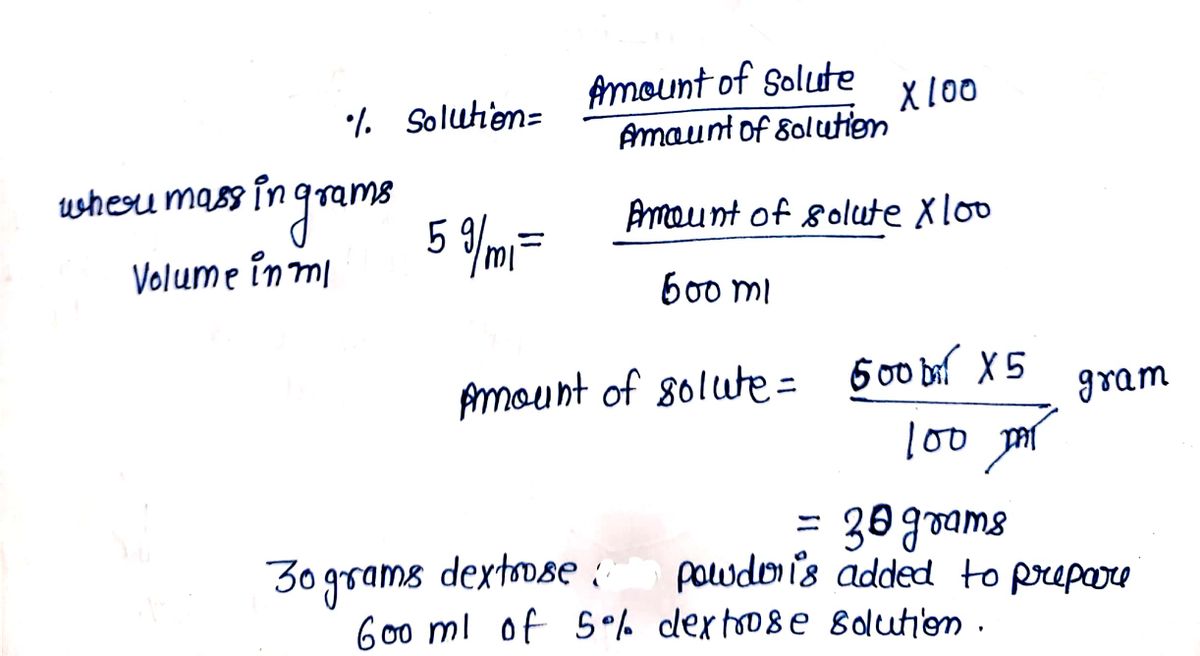 Amount of Solute
% Solution= ———————— X100
Amount of solution
where mass in grams
Volume in ml
5 g/ml = Amount of solute X100
600 ml
Amount of solute = 600 ml X5 gram
100 ml
= 30 grams
30 grams dextrose powder is added to prepare
600 ml of 5% dextrose solution.